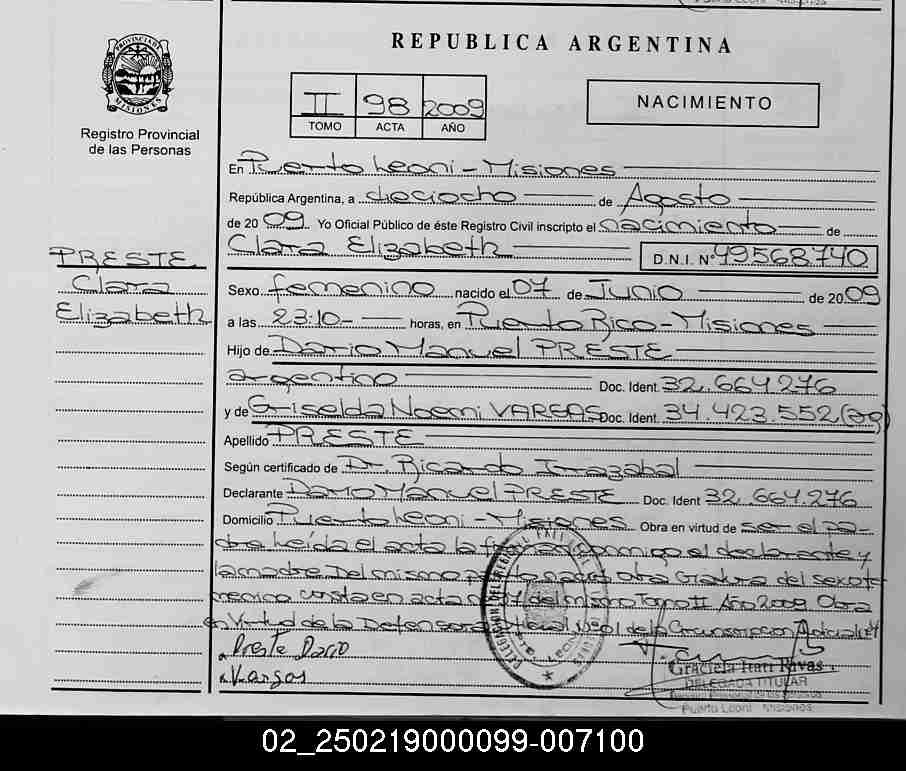 REPUBLICA ARGENTINA
PROVINCIA DE MISIONES
Registro Provincial
de las Personas
II 98 2009
TOMO ACTA AÑO
NACIMIENTO
En Puerto Leoni - Misiones
República Argentina, a dieciocho de Agosto
de 20 09 Yo Oficial Público de éste Registro Civil inscripto el nacimiento de
Clara Elizabeth D.N.I. Nº 49568740
PRESTE
Clara
Elizabeth
Sexo femenino nacido el 07 de Junio de 20 09
a las 23:10- horas, en Puerto Rico - Misiones
Hijo de Dario Manuel PRESTE
argentino Doc. Ident. 32.664.276
y de Griselda Noemi VARGAS Doc. Ident. 34.423.552 (ag)
Apellido PRESTE
Según certificado de Dr. Ricardo Irrazabal
Declarante Dario Manuel PRESTE Doc. Ident 32.664.276
Domicilio Puerto Leoni - Misiones Obra en virtud de ser el pa-
dre leída el acta la firman conmigo el declarante y
la madre Del mismo nacio otra criatura del sexo fe-
menino consta en acta del mismo Tomo II Año 2009 Obra
en Virtud de la Defensora de la Circunscripcion Judicial
Preste Dario
Vargas
Graciela Itati Rivas
DELEGADA TITULAR
Registro Provincial de las Personas
Puerto Leoni Misiones
02_250219000099-007100